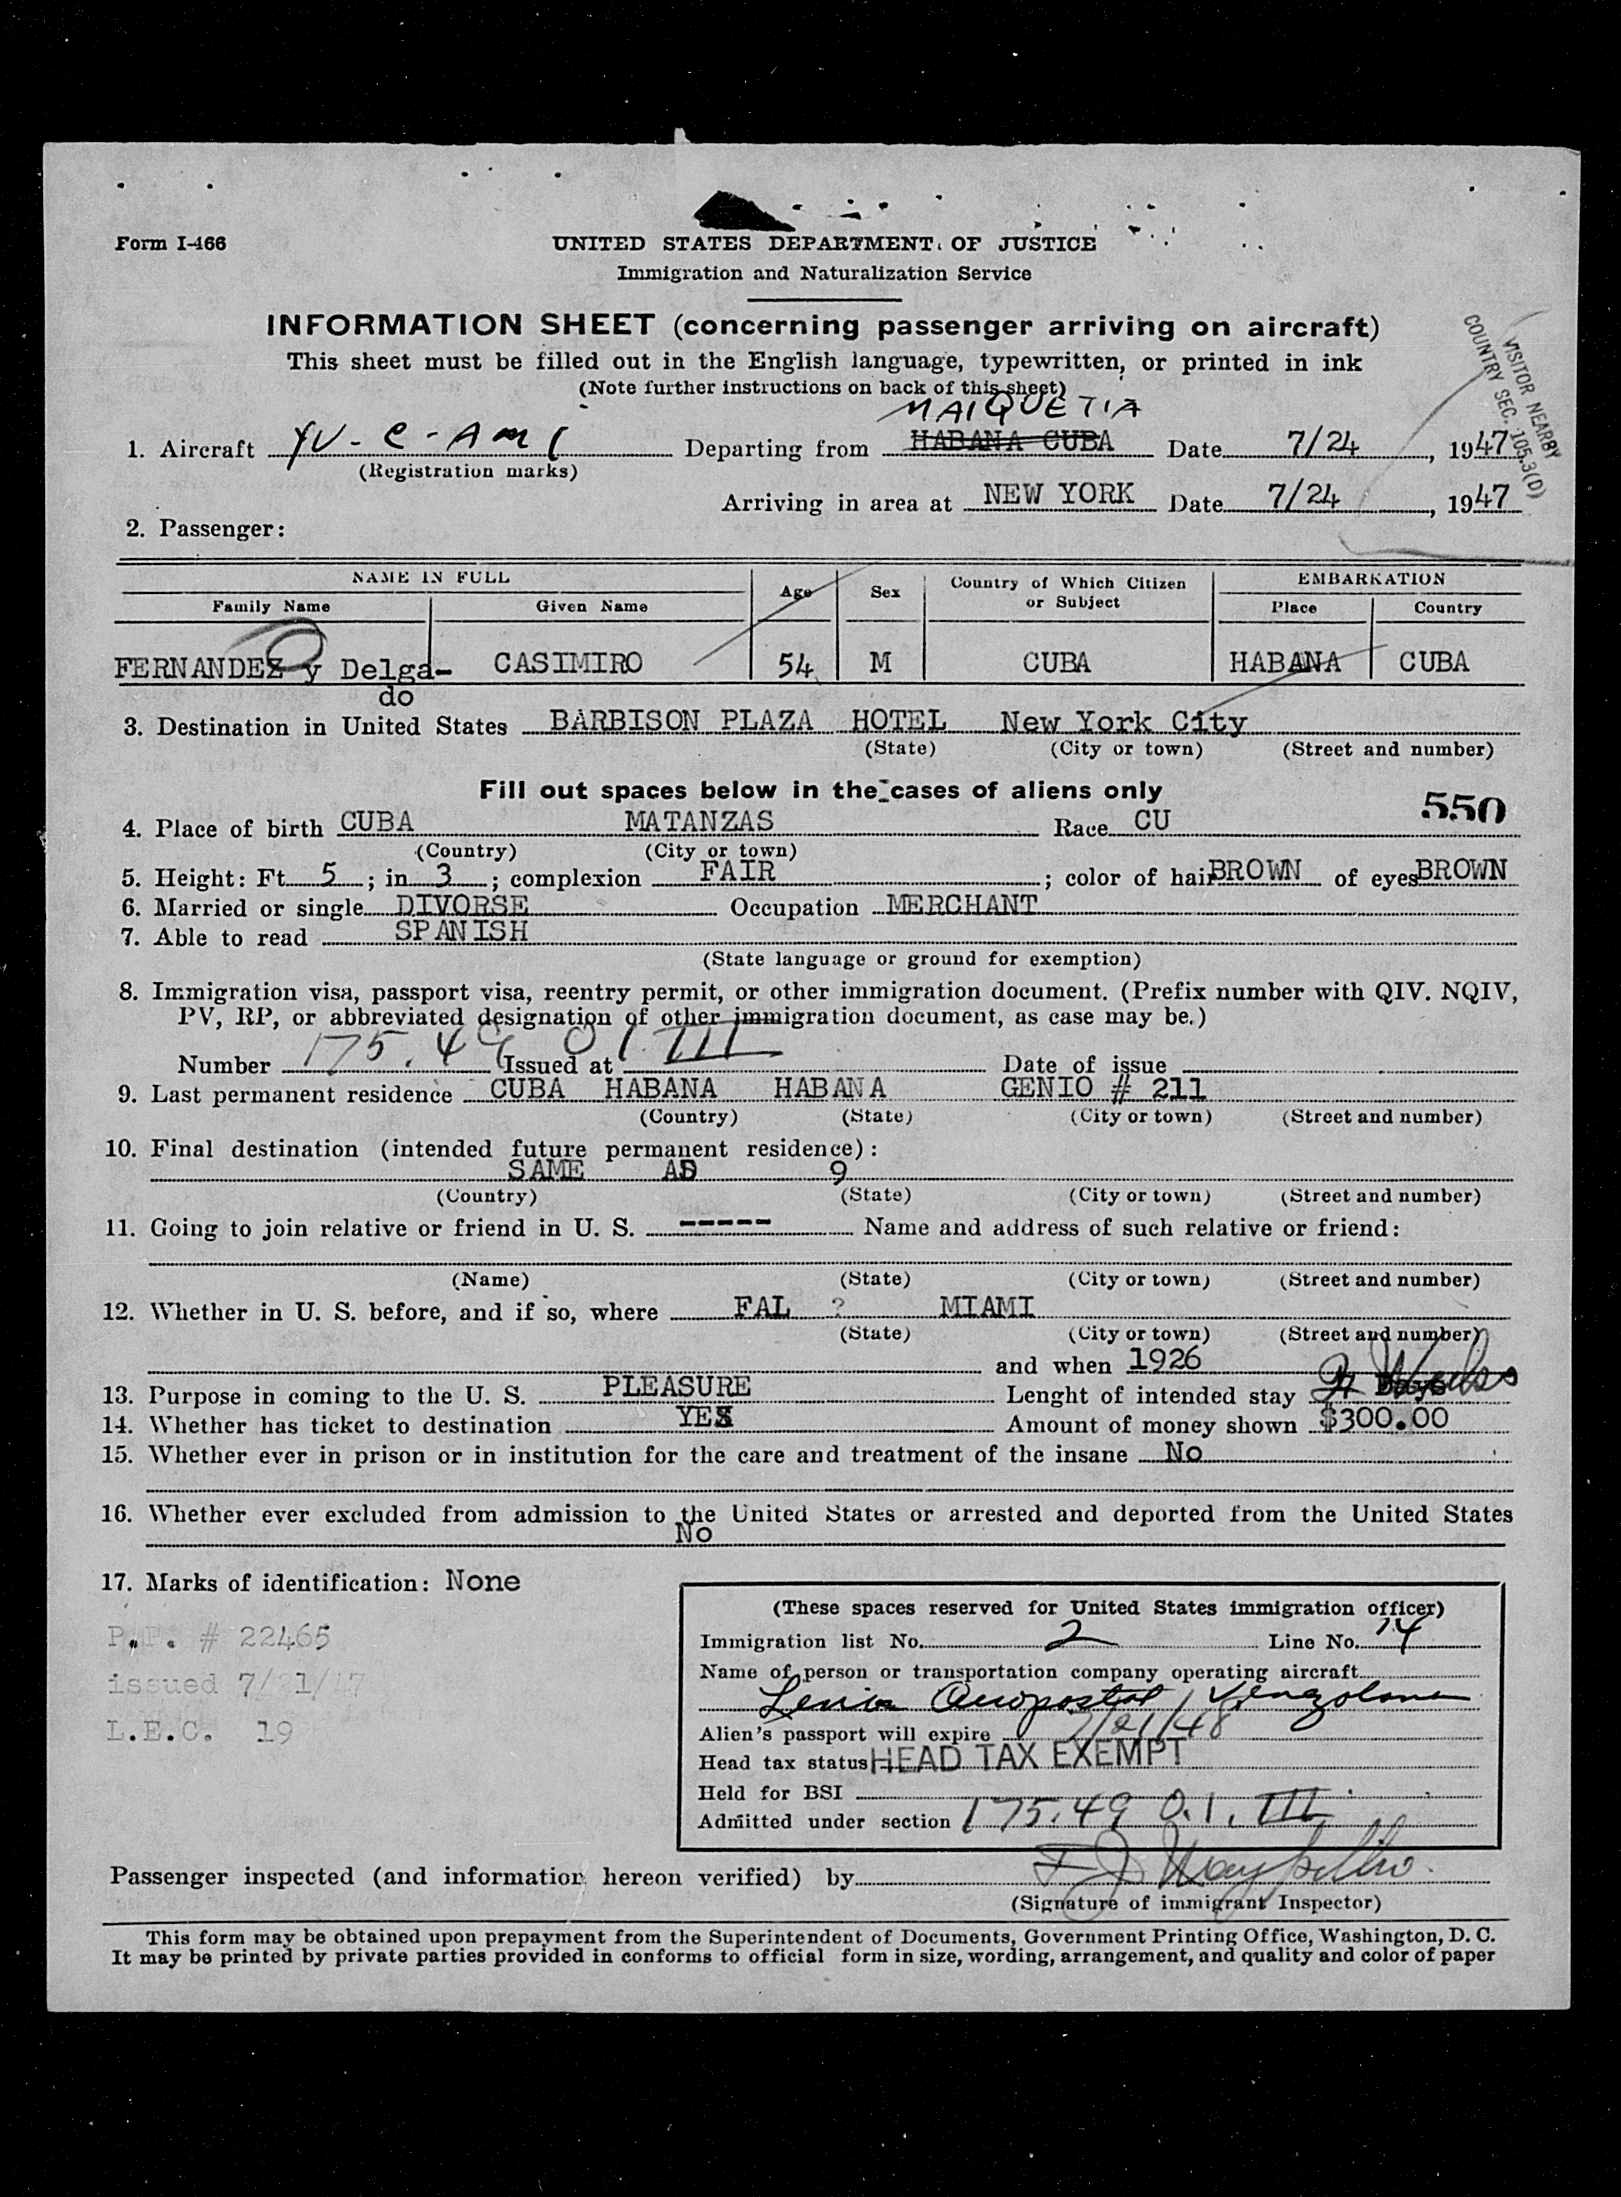 Form I-466
UNITED STATES DEPARTMENT OF JUSTICE
Immigration and Naturalization Service
INFORMATION SHEET (concerning passenger arriving on aircraft)
This sheet must be filled out in the English language, typewritten, or printed in ink
(Note further instructions on back of this sheet)
VISITOR NEARBY
COUNTRY SEC. 105.3(D)
MAIQUETIA
1. Aircraft YV-C-AMI Departing from HABANA CUBA Date 7/24, 1947
(Registration marks)
Arriving in area at NEW YORK Date 7/24, 1947
2. Passenger:
NAME IN FULL Age Sex Country of Which Citizen or Subject EMBARKATION
Family Name Given Name Place Country
FERNANDEZ y Delga- CASIMIRO 54 M CUBA HABANA CUBA
do
3. Destination in United States BARBISON PLAZA HOTEL New York City
(State) (City or town) (Street and number)
Fill out spaces below in the cases of aliens only
550
4. Place of birth CUBA MATANZAS Race CU
(Country) (City or town)
5. Height: Ft. 5; in. 3; complexion FAIR; color of hair BROWN of eyes BROWN
6. Married or single DIVORSE Occupation MERCHANT
7. Able to read SPANISH
(State language or ground for exemption)
8. Immigration visa, passport visa, reentry permit, or other immigration document. (Prefix number with QIV. NQIV,
PV, RP, or abbreviated designation of other immigration document, as case may be.)
Number 175.49 Issued at O1 III Date of issue
9. Last permanent residence CUBA HABANA HABANA GENIO # 211
(Country) (State) (City or town) (Street and number)
10. Final destination (intended future permanent residence):
SAME AS 9
(Country) (State) (City or town) (Street and number)
11. Going to join relative or friend in U. S. ----- Name and address of such relative or friend:
(Name) (State) (City or town) (Street and number)
12. Whether in U. S. before, and if so, where FAL ? MIAMI
(State) (City or town) (Street and number)
and when 1926
13. Purpose in coming to the U. S. PLEASURE Lenght of intended stay Days
14. Whether has ticket to destination YES Amount of money shown $300.00
15. Whether ever in prison or in institution for the care and treatment of the insane No
16. Whether ever excluded from admission to the United States or arrested and deported from the United States
No
17. Marks of identification: None
P.P. # 22465
issued 7/21/47
L.E.C. 19
(These spaces reserved for United States immigration officer)
Immigration list No. 2 Line No. 14
Name of person or transportation company operating aircraft
Lenia Aeropostal Venezolana
Alien's passport will expire 7/21/48
Head tax status HEAD TAX EXEMPT
Held for BSI
Admitted under section 175.49 O.1. III
Passenger inspected (and information hereon verified) by
(Signature of immigrant Inspector)
This form may be obtained upon prepayment from the Superintendent of Documents, Government Printing Office, Washington, D. C.
It may be printed by private parties provided in conforms to official form in size, wording, arrangement, and quality and color of paper